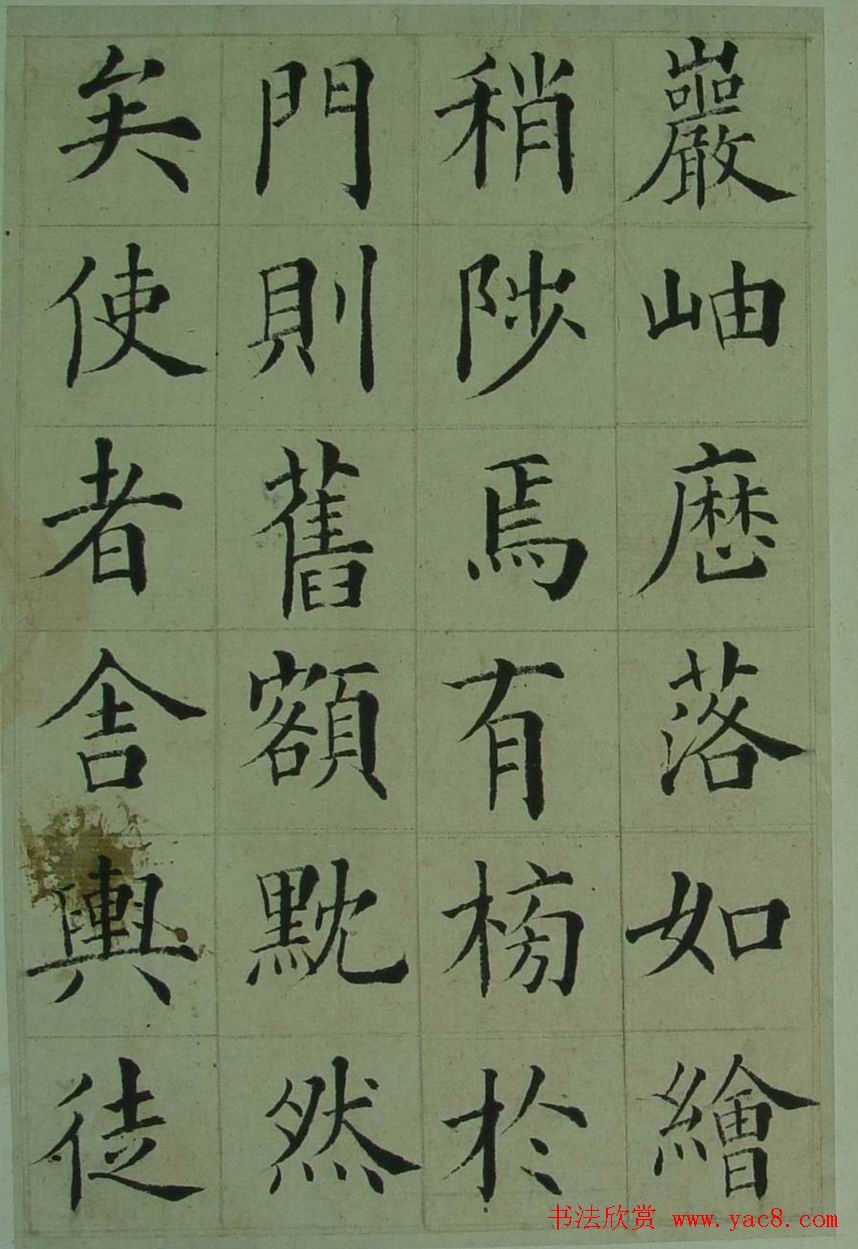 巖岫歷落如繪
稍陟焉有榜於
門則舊額黙然
矣使者舍輿徒
书法欣赏 www.yac8.com